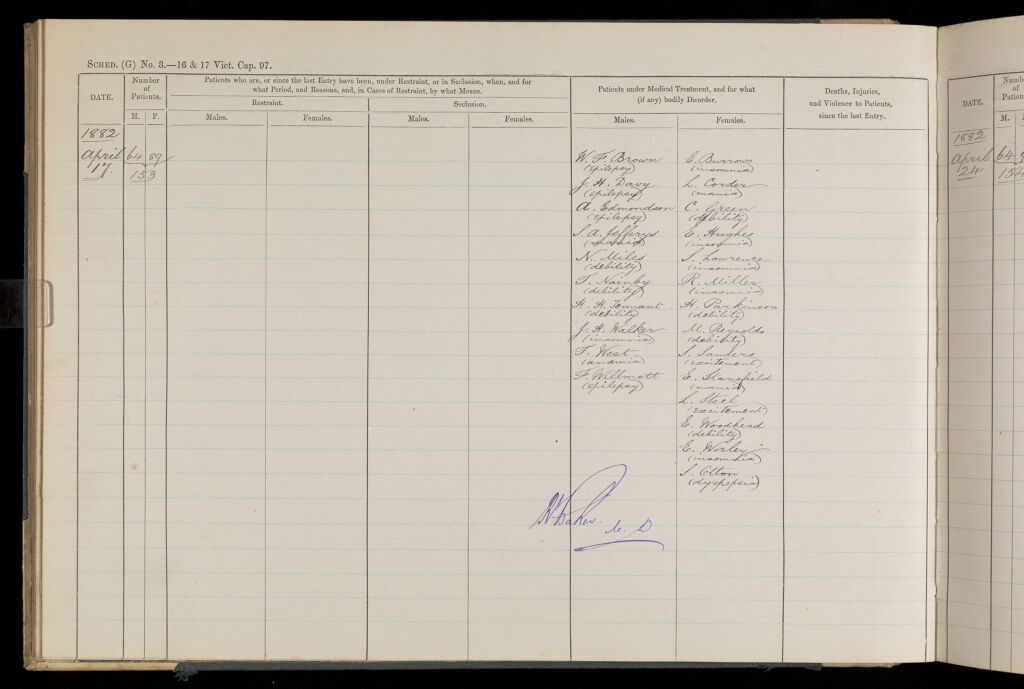 SCHED. (G) No. 3.—16 & 17 Vict. Cap. 97.
DATE.
Number
of
Patients.
M. F.
Patients who are, or since the last Entry have been, under Restraint, or in Seclusion, when, and for
what Period, and Reasons, and, in Cases of Restraint, by what Means.
Restraint.
Seclusion.
Males.
Females.
Males.
Females.
Patients under Medical Treatment, and for what
(if any) bodily Disorder.
Males.
Females.
Deaths, Injuries,
and Violence to Patients,
since the last Entry.
1882
April
17
64 89
153
W. F. Brown
(epilepsy)
J. H. Davy
(epilepsy)
A. Edmondson
(epilepsy)
S. A. Jefferys
N. Miles
(debility)
T. Nainby
(debility)
H. H. Tennant
(debility)
J. H. Walker
(insomnia)
T. West
F. Willmott
(epilepsy)
E. Burrows
(insomnia)
L. Corder
(mania)
C. Green
(debility)
E. Hughes
(insomnia)
S. Lawrence
(insomnia)
R. Miller
(insomnia)
H. Parkinson
(debility)
M. Reynolds
(debility)
S. Sanders
(excitement)
E. Stansfield
(mania)
L. Steel
(excitement)
E. Woodhead
(debility)
E. Worley
(insomnia)
S. Otton
(dyspepsia)
Baker. M. D
DATE.
Numb
of
Patien
M.
1882
April
24
64
154